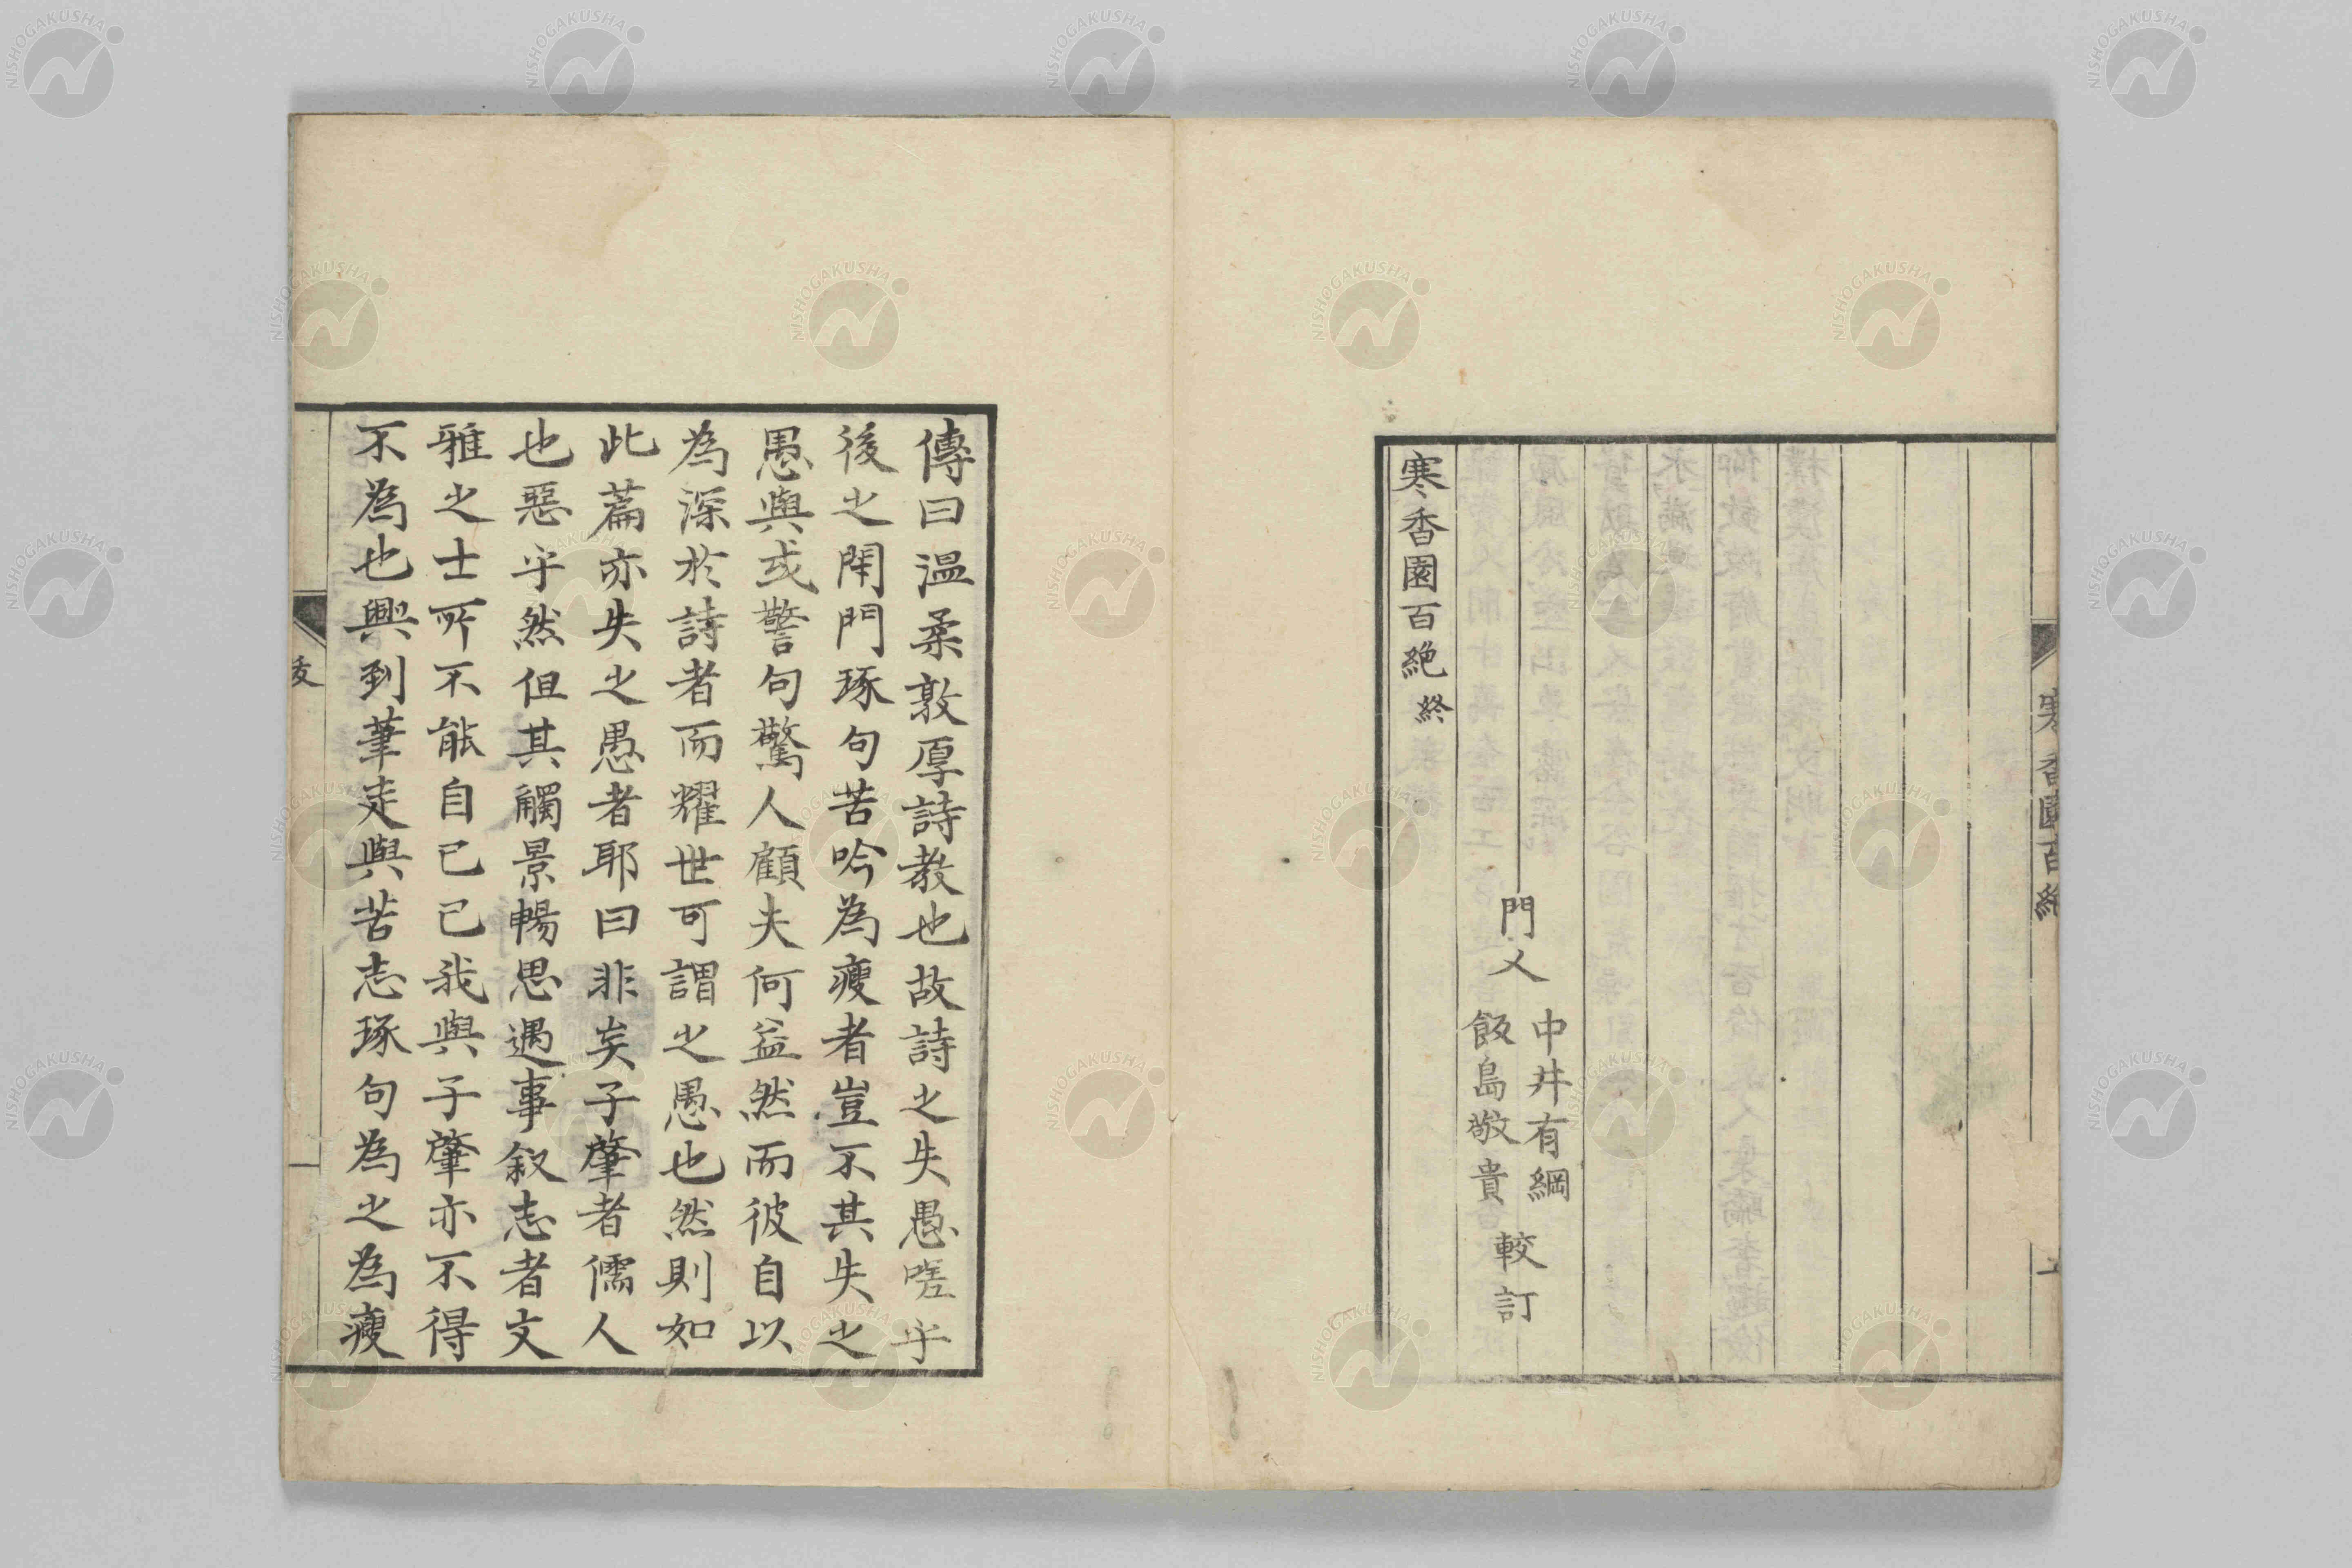 門人
中井有綱
飯島敬貴
較訂
寒香園百絶終
傳曰溫柔敦厚詩教也故詩之失愚嗟乎
後之閉門琢句苦吟為瘦者豈不其失之
愚與或警句驚人顧夫何益然而彼自以
為深於詩者而耀世可謂之愚也然則如
此篇亦失之愚者耶曰非矣子肇者儒人
也惡乎然但其觸景暢思遇事叙志者文
雅之士所不能自已已我與子肇亦不得
不為也興到筆走與苦志琢句為之為瘦